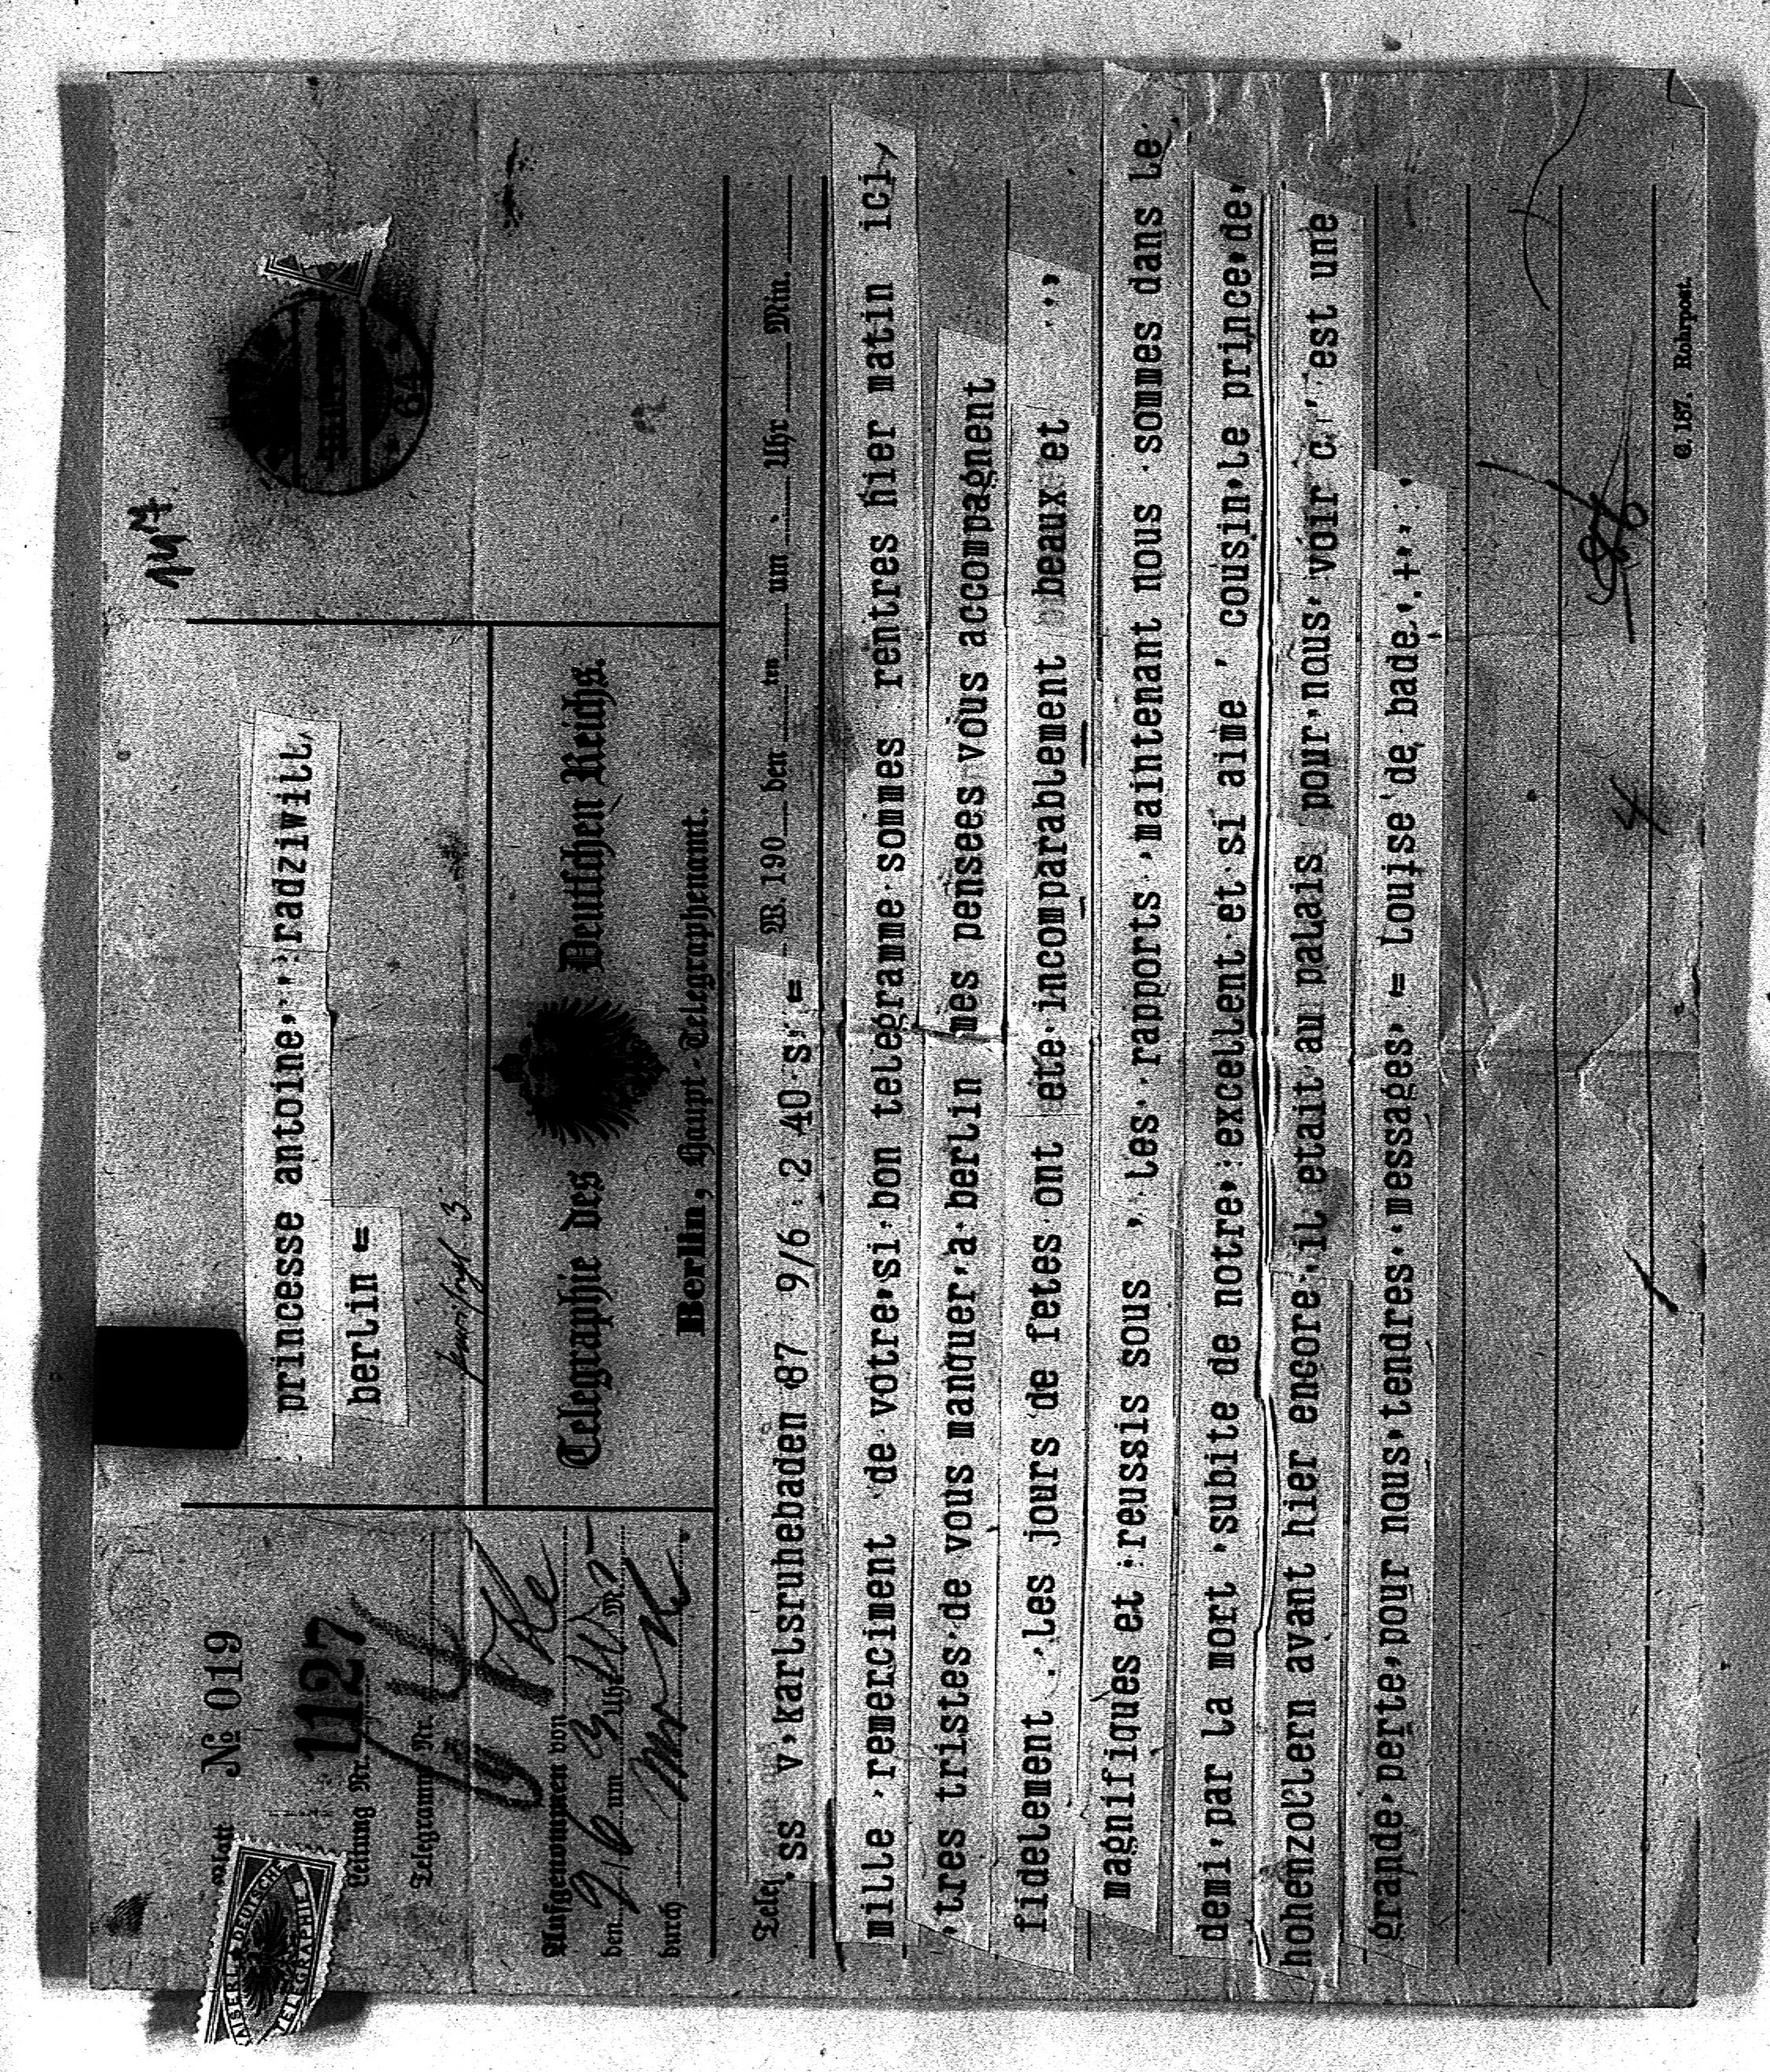 Blatt № 019
Leitung Nr. 1127
Telegramm Nr.
Aufgenommen von
den 9/6 um 3 Uhr M.
durch
princesse antoine radziwill,
berlin =
Telegraphie des Deutschen Reichs.
Berlin, Haupt-Telegraphenamt.
ss v karlsruhebaden 87 9/6 2 40 s =
W. 190 den ten um Uhr Min.
mille remerciment de votre si bon telegramme sommes rentres hier matin ici,
tres tristes de vous manquer a berlin mes pensees vous accompagnent
fidelement . Les jours de fetes ont ete incomparablement beaux et
magnifiques et reussis sous , les rapports maintenant nous sommes dans le
demi par la mort subite de notre excellent et si aime ' cousin le prince de
hohenzollern avant hier encore il etait au palais pour nous voir c' est une
grande perte pour nous tendres messages = Louise de bade +
C. 187. Rohrpost.
KAISERL. DEUTSCHE
TELEGRAPHIE
64
4